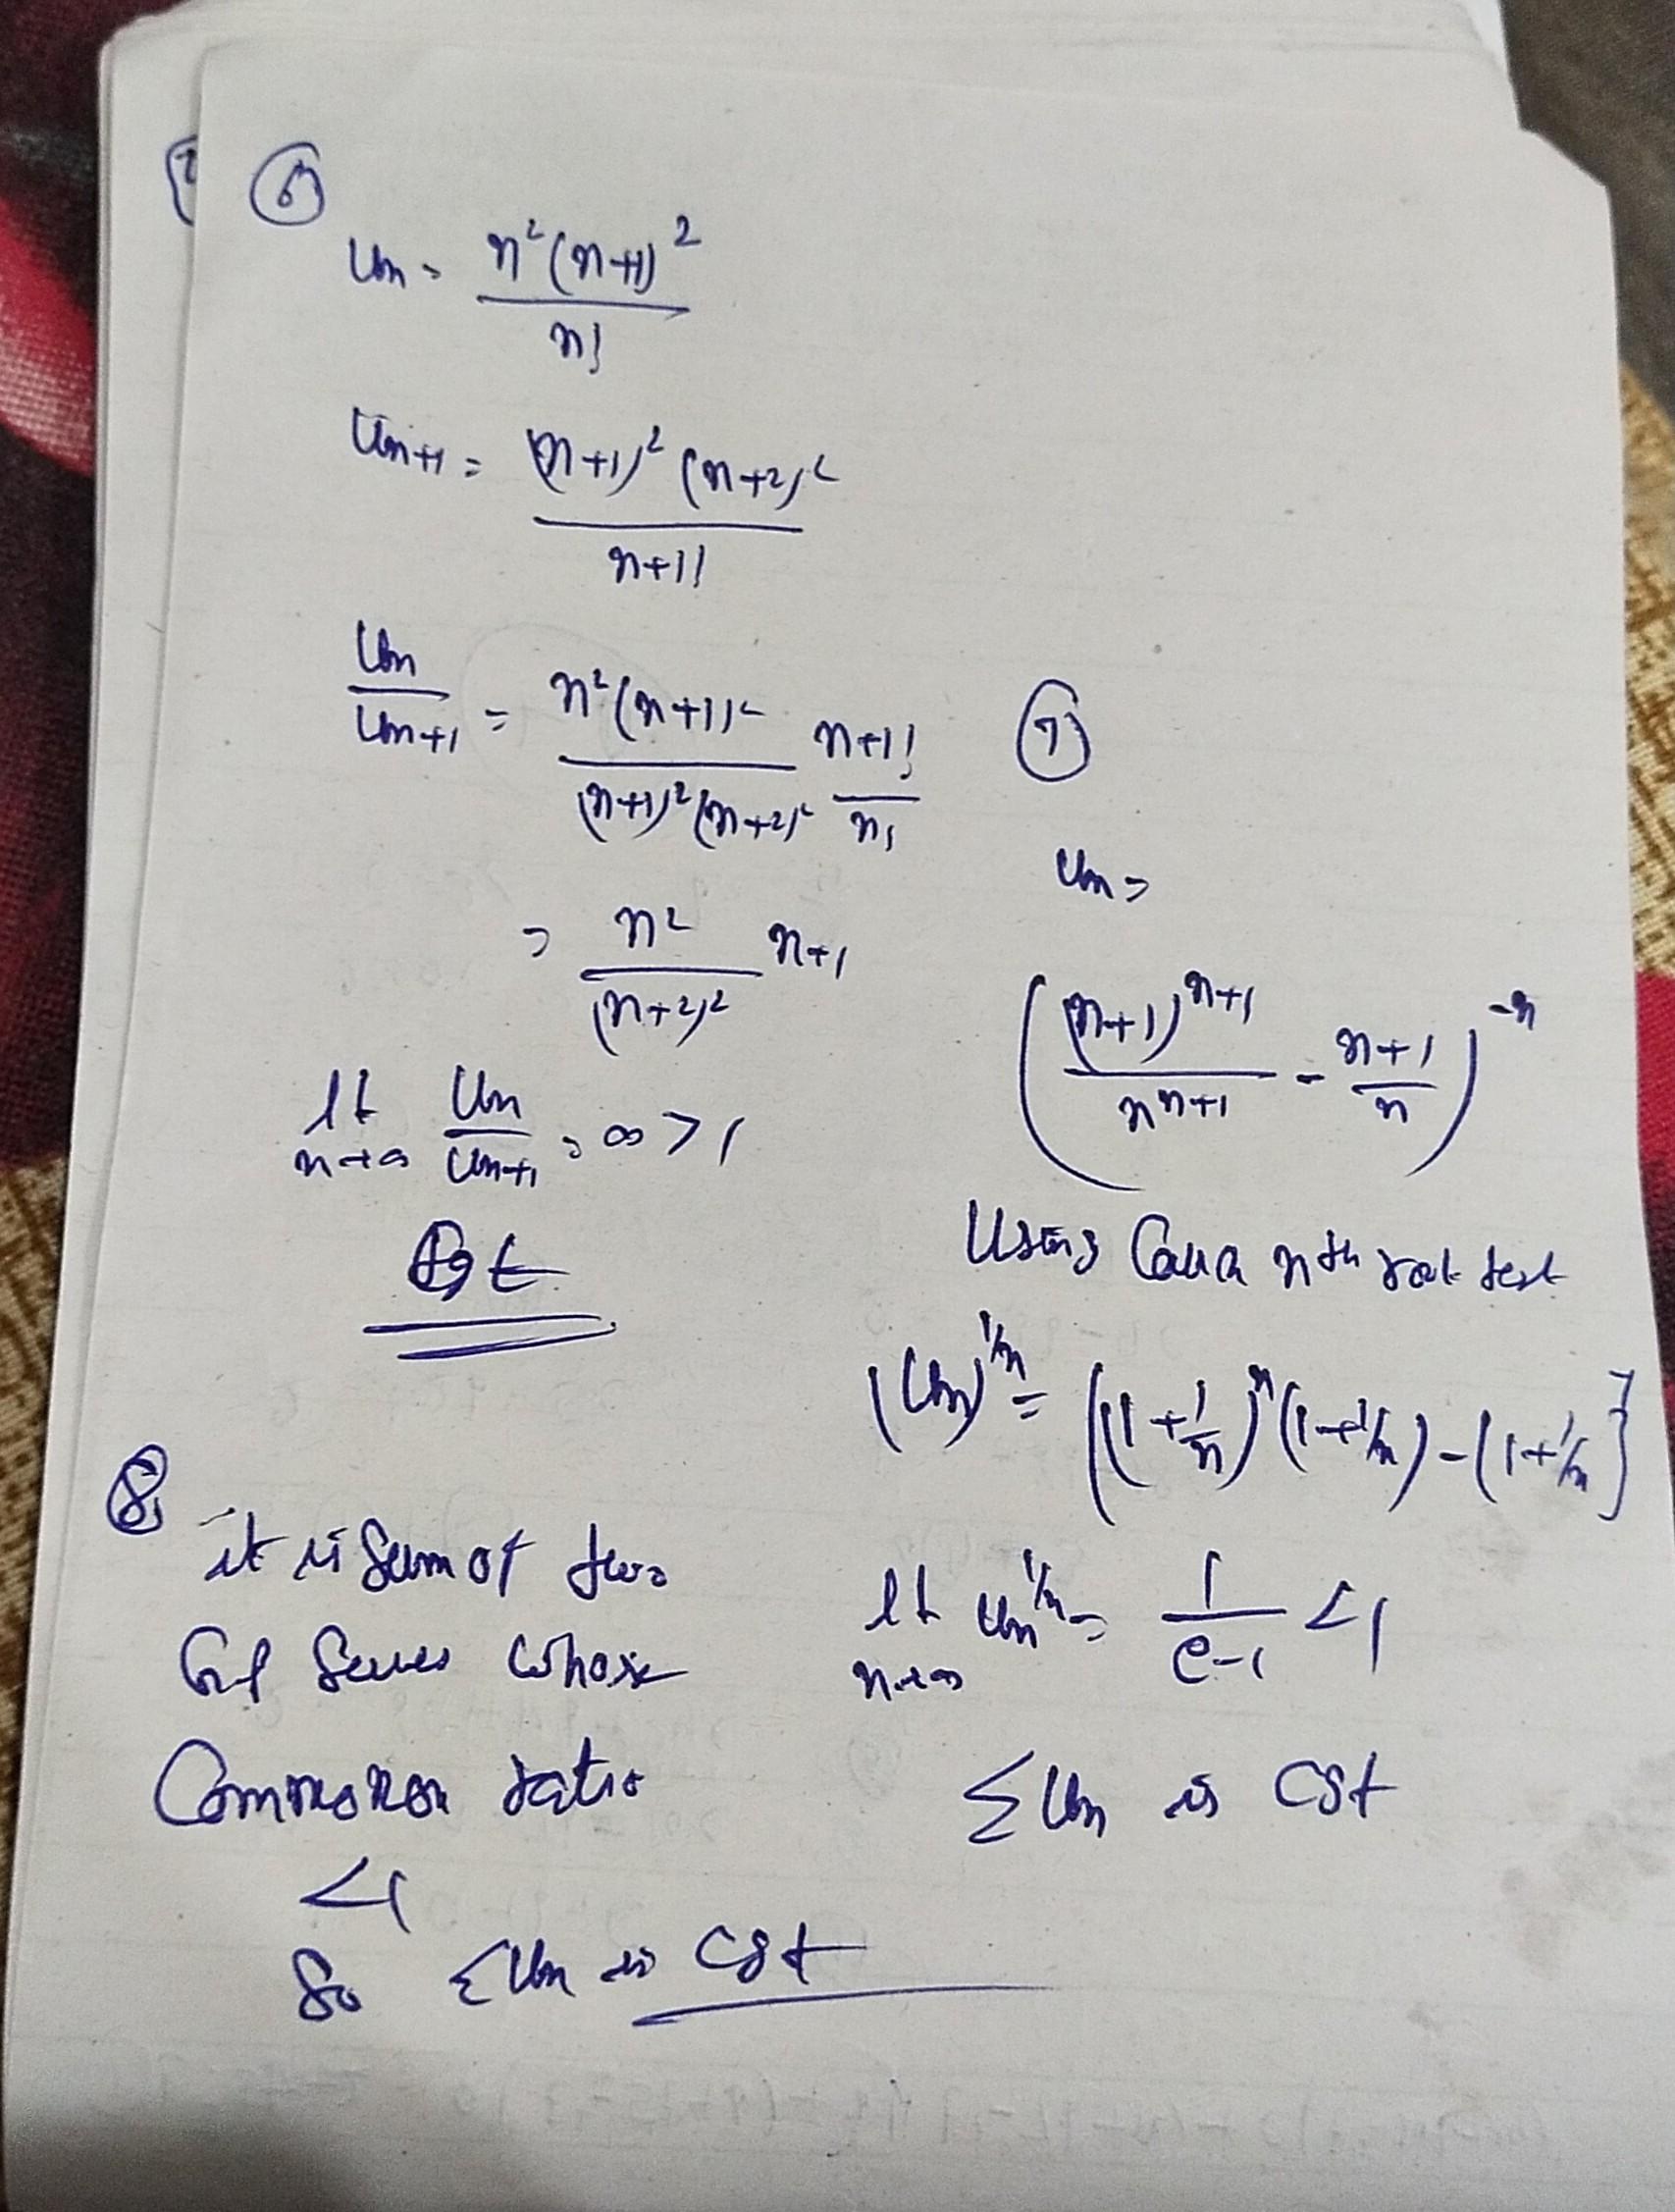 6
Un = n²(n+1)² / n!
Un+1 = (n+1)² (n+2)² / n+1!
Un / Un+1 = n²(n+1)² / (n+1)²(n+2)² n+1! / n!
= n² / (n+2)² n+1
lt n→∞ Un / Un+1 = ∞ > 1
7
Un =
( (n+1)^n+1 / n^n+1 - n+1 / n )^-n
Using nth root test
(Un)^1/n = ((1+1/n)^n (1+1/n) - (1+1/n)}
lt n→∞ Un^1/n = 1 / e-1 < 1
ΣUn is Cgt
8
it is Sum of two
G.P Series whose
Common ratio
<1
So ΣUn is Cgt